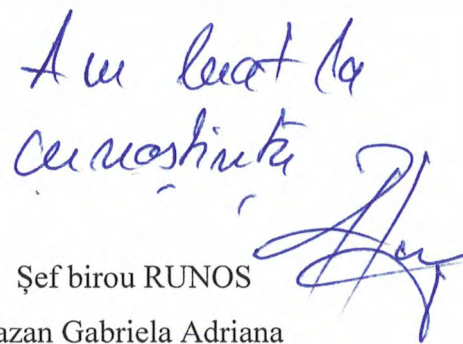 Am luat la
cunoștință
Șef birou RUNOS
azan Gabriela Adriana